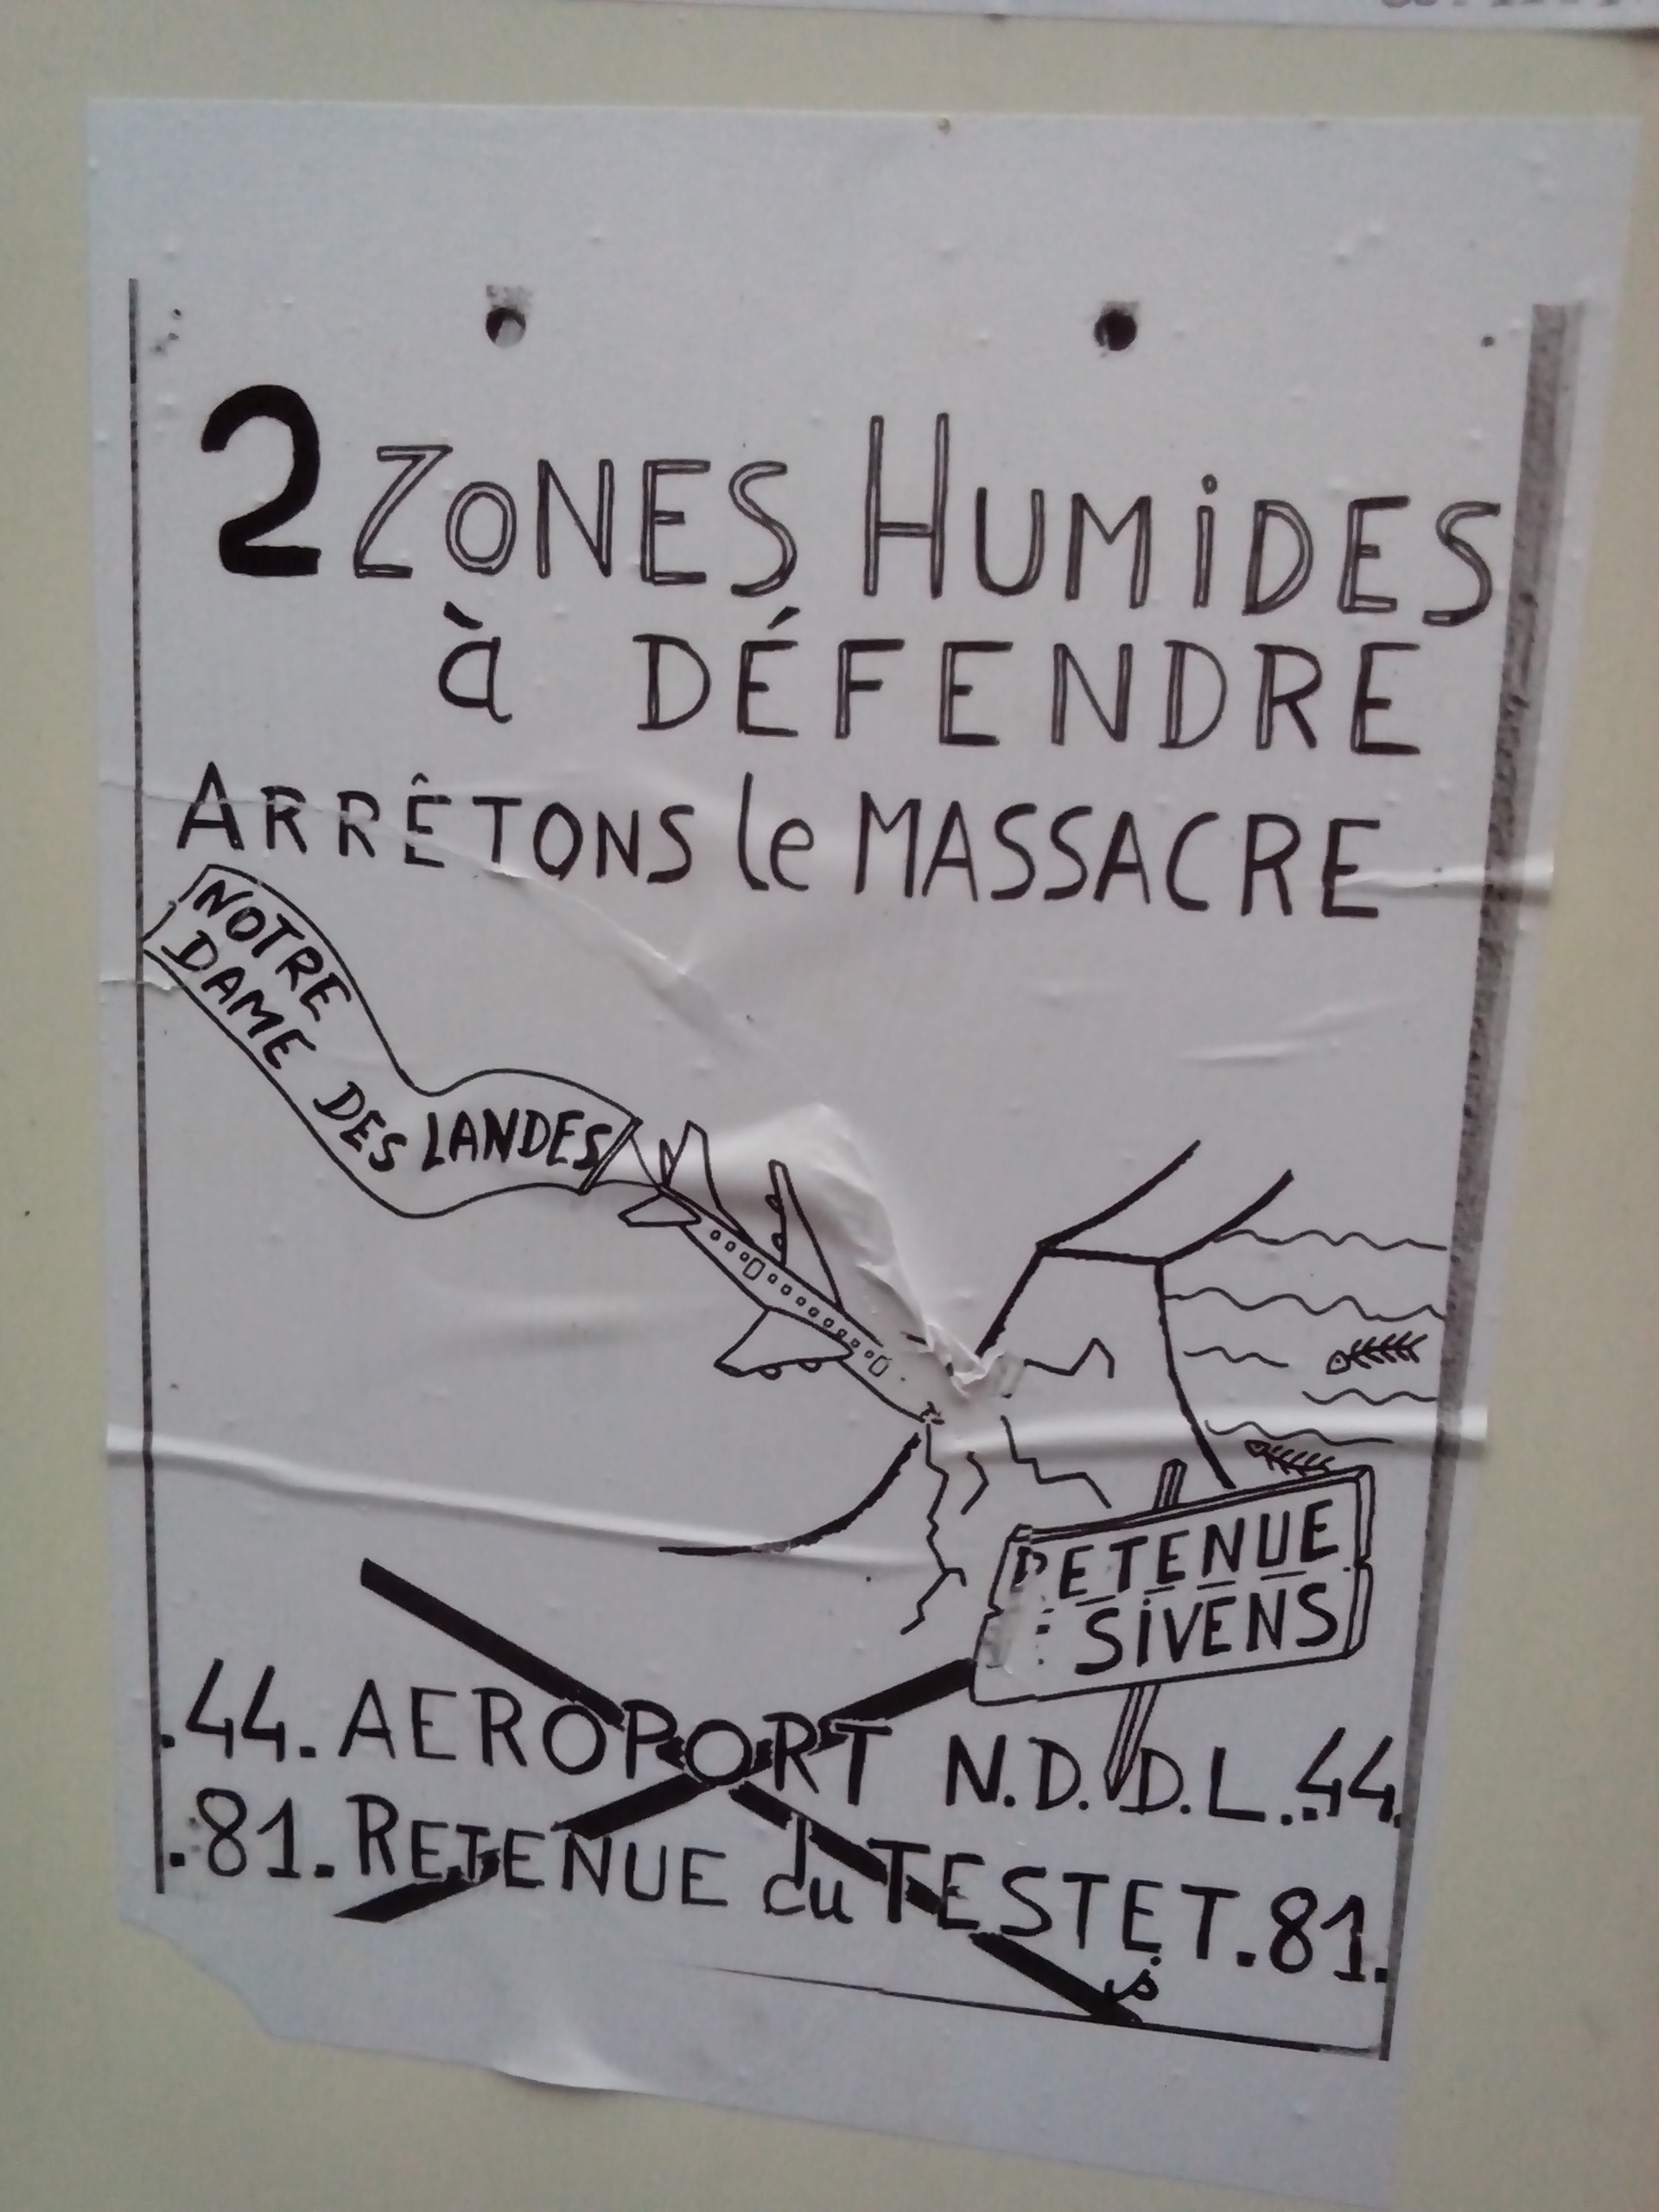 2 ZONES HUMIDES
à DÉFENDRE
ARRÊTONS le MASSACRE
NOTRE
DAME DES LANDES
RETENUE
SIVENS
.44. AEROPORT N.D.D.L..44.
.81. RETENUE du TESTET.81.